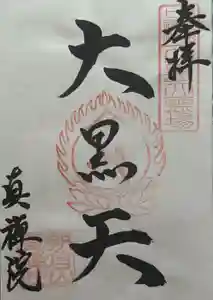 奉拝
大黒天
真禅院